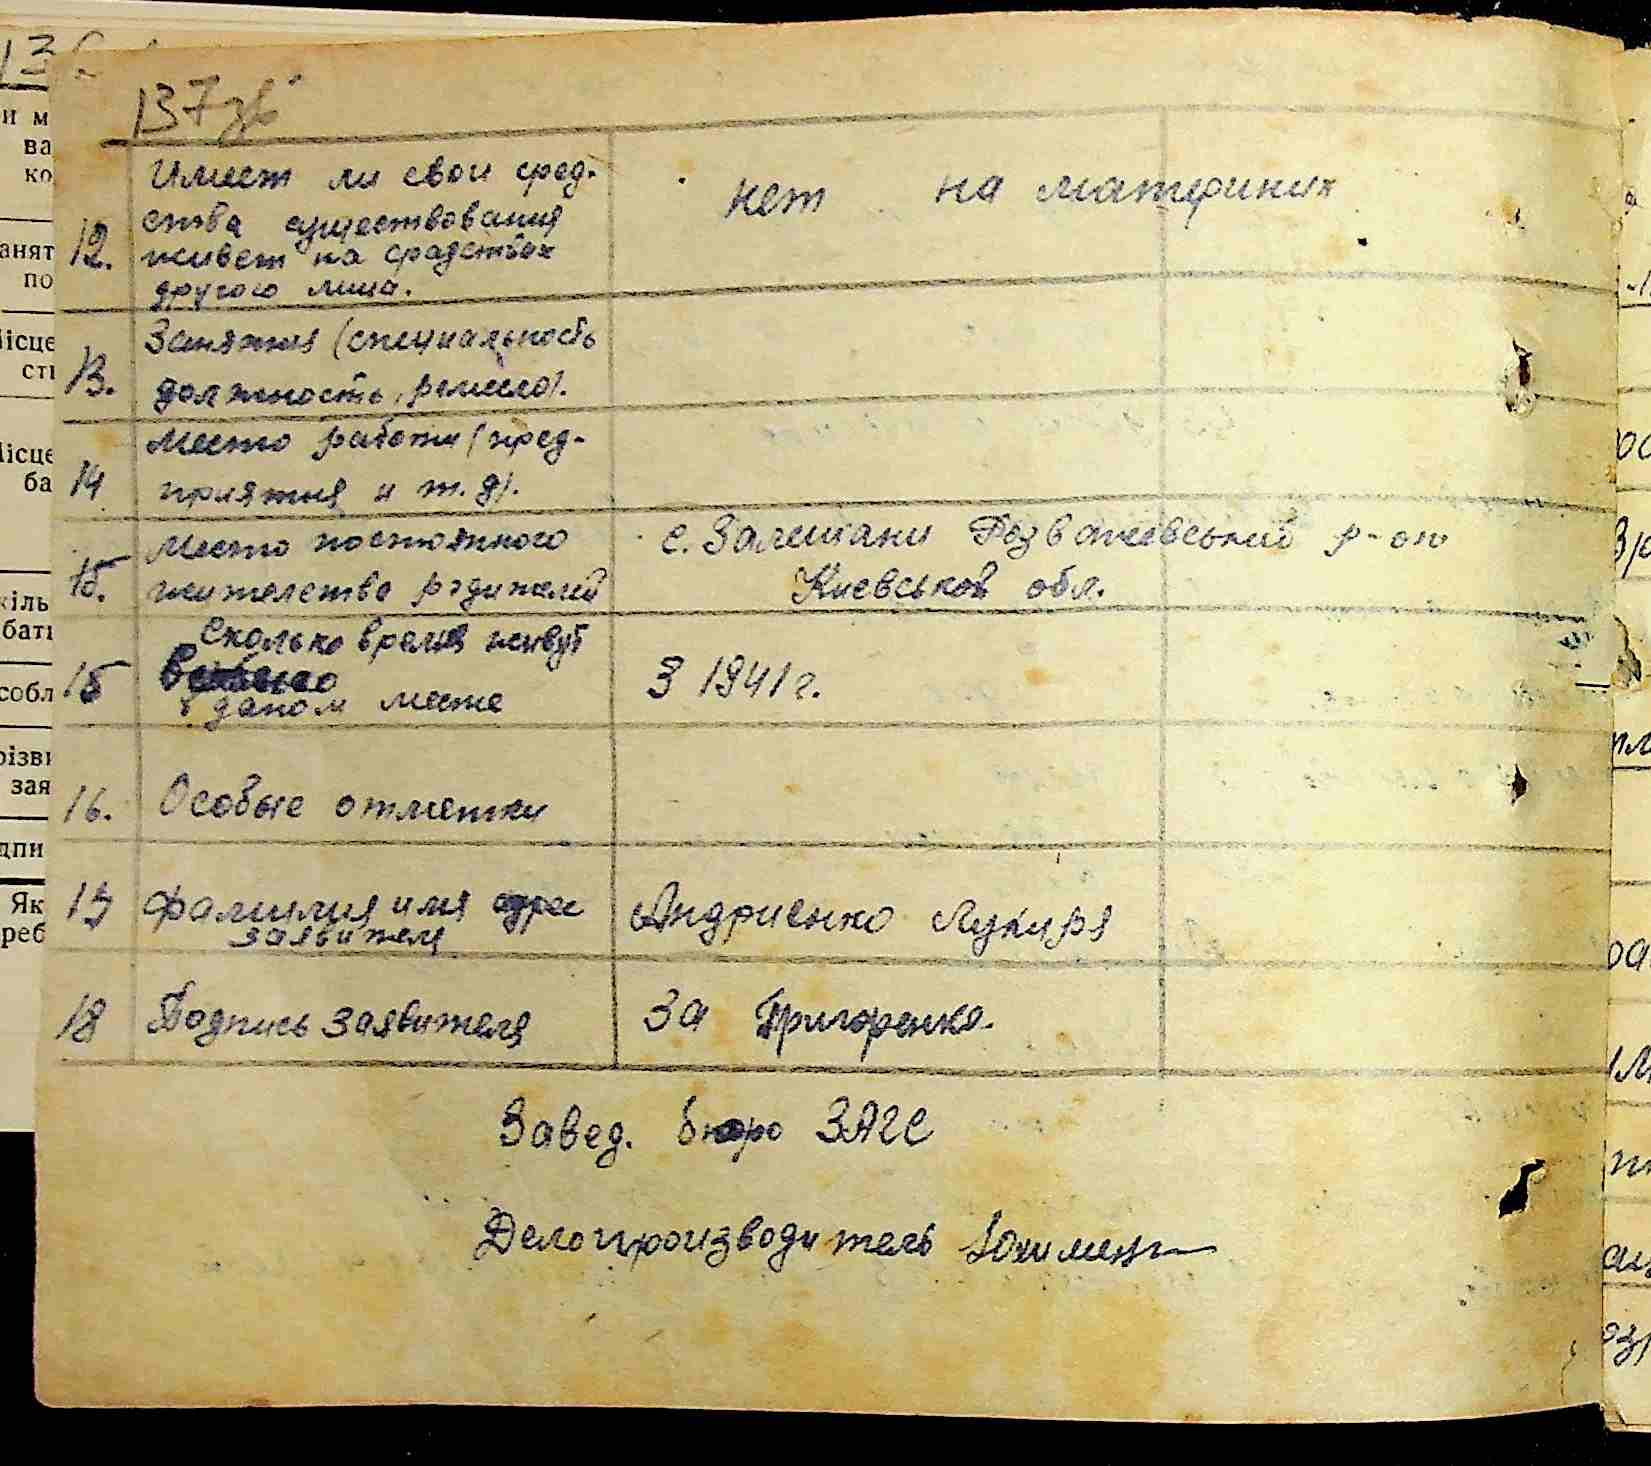 137зв
12. Имеет ли свои сред-
ства существования
живет на средствах
другого лица.
нет на материних
13. Занятия (специальность
должность, ремесло).
14 Место работы (пред-
приятия и т.д).
15. Место постоянного
жительства родителей
с. Залешани Розважевський р-он
Киевськой обл.
15 Сколько время живут
в даном месте
З 1941 г.
16. Особые отметки
17 Фамилия имя адрес
заявителя
Андриенко Лукиря
18 Подпись заявителя
За Григоренко.
Завед. бюро ЗАГС
Делопроизводитель